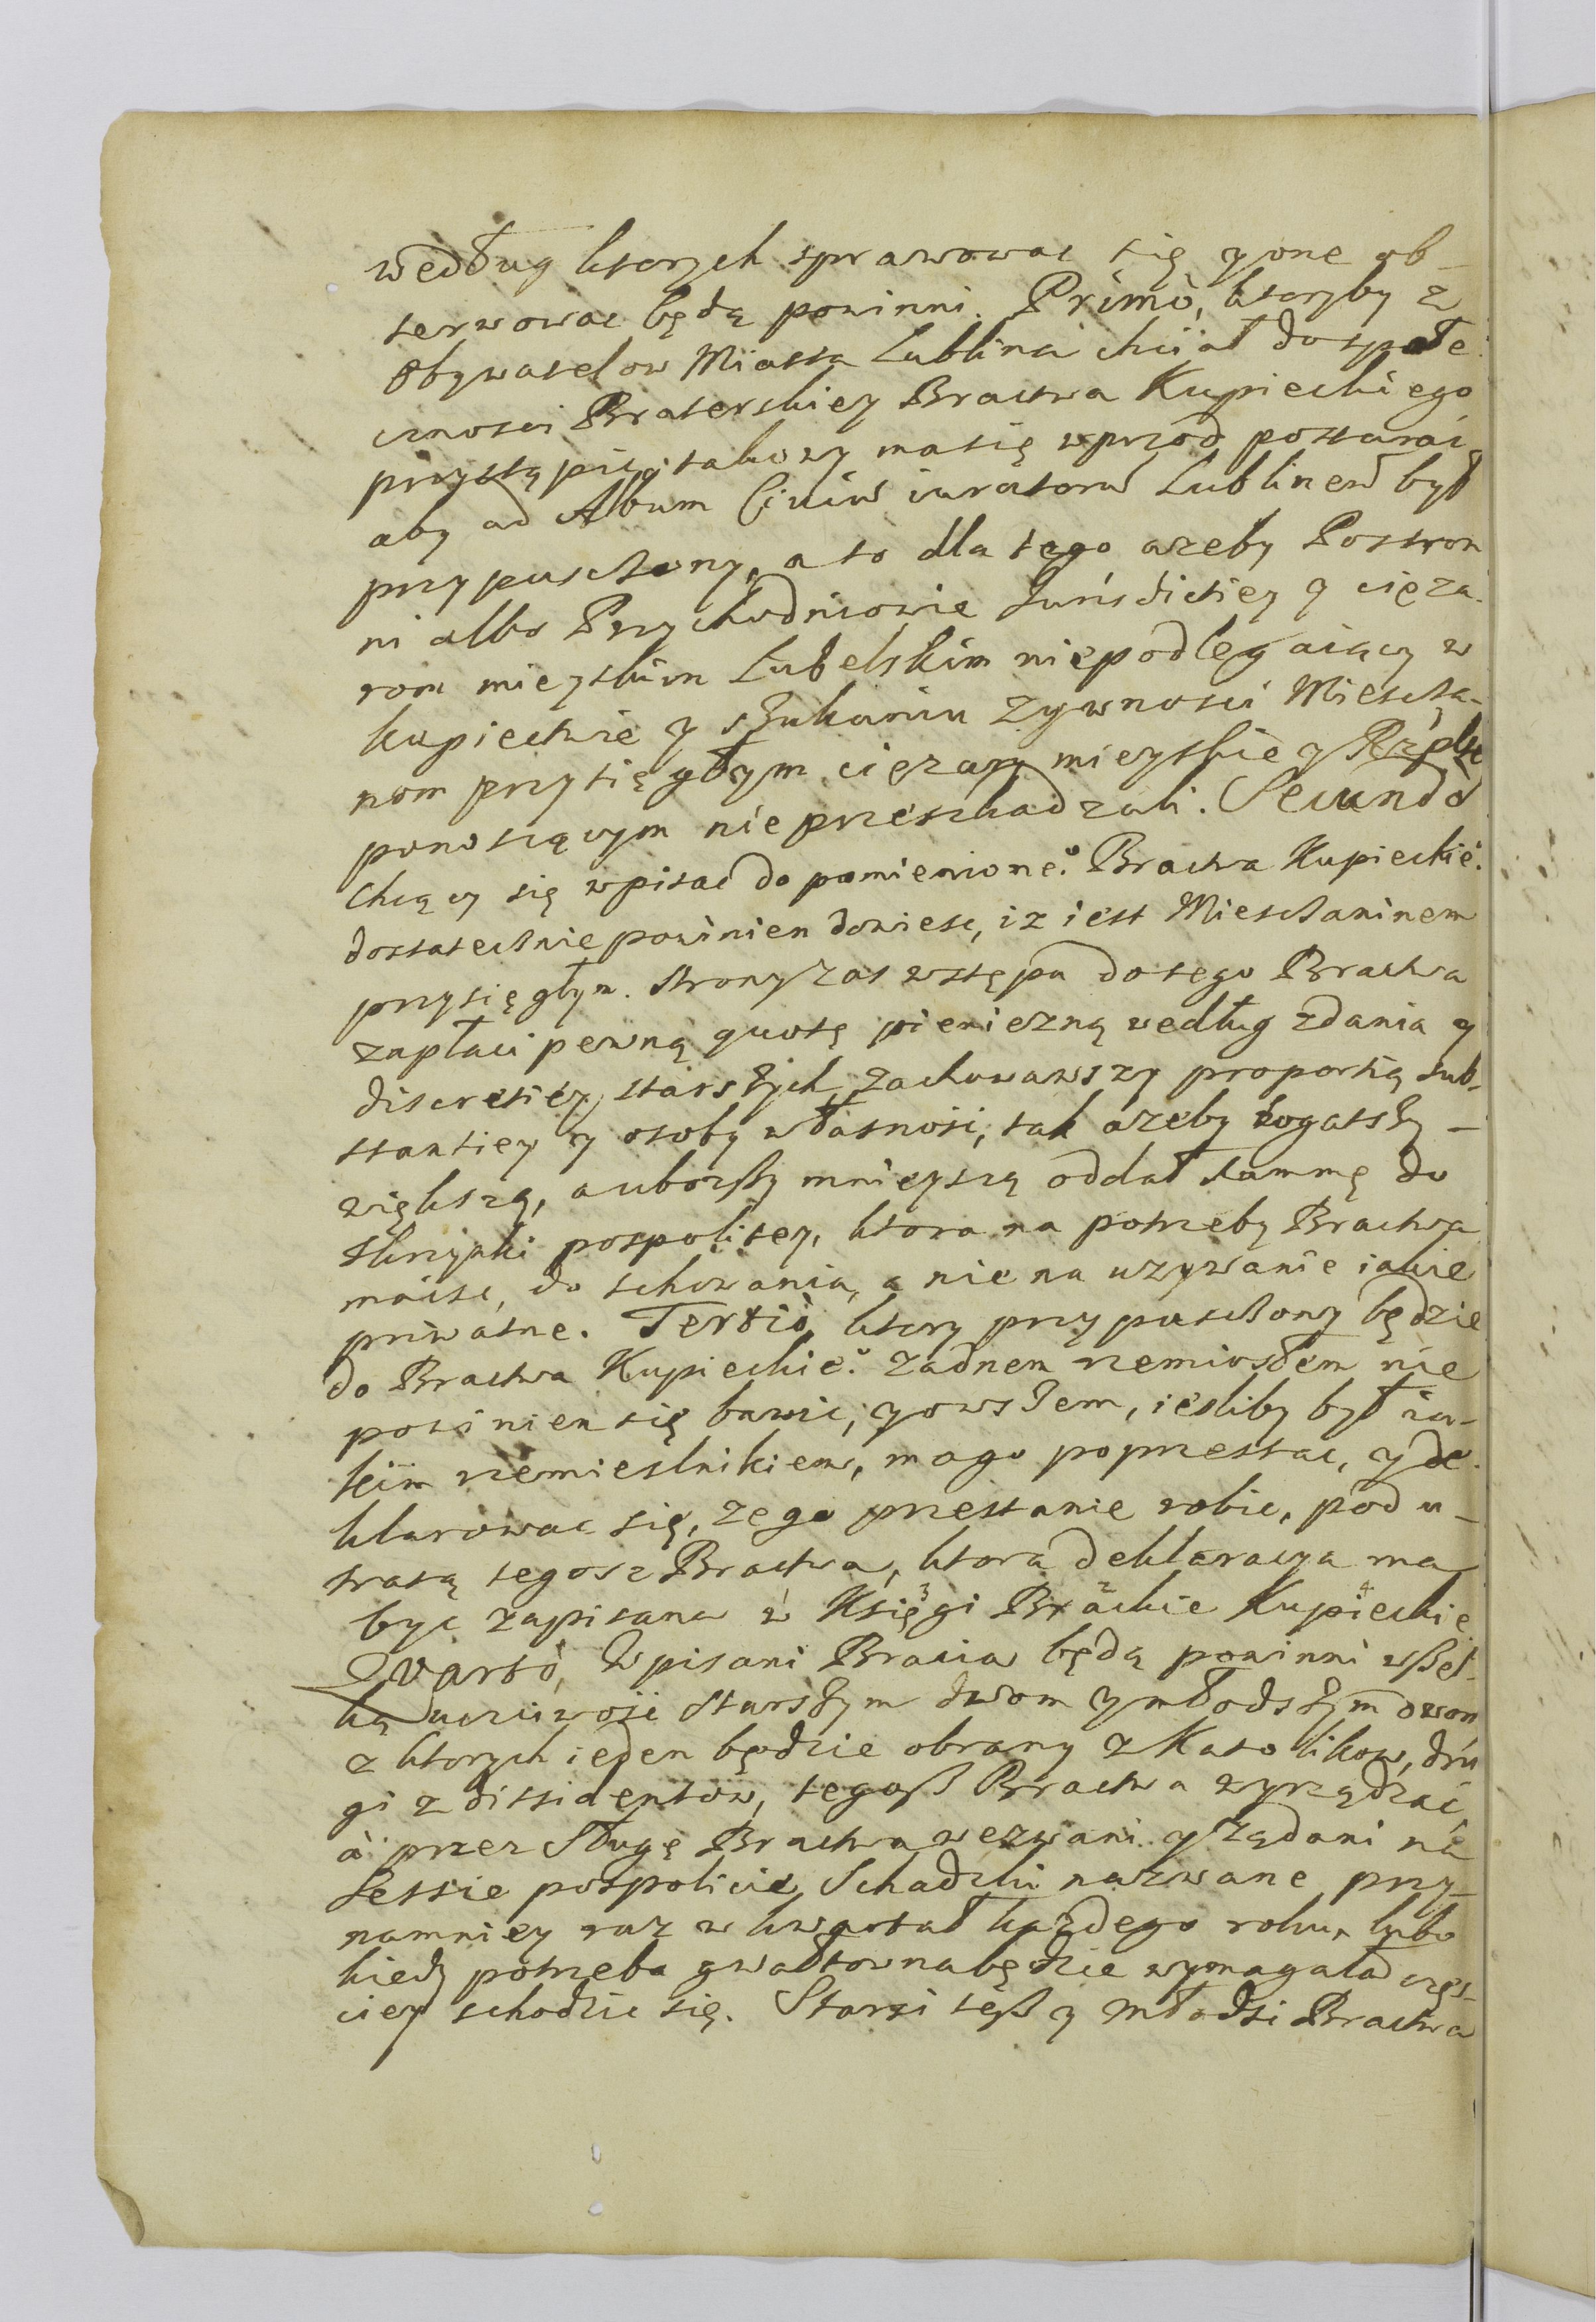 według ktorych sprawowac się y one ob-
serwowac będą powinni. Primò, ktoryby z
Obywatelow Miasta Lublina chciał do społe-
cznosci Braterskiey Bractwa Kupieckiego
przystąpić, takowy ma się wprzod postarać,
aby ad Album Civiu iuratoru Lublinen był
przypuszczony, a to dla tego azeby Postron
ni albo Przychodniowie Iurisdictiey y cięza-
rom mieyskim Lubelskim niepodlegaiący w
kupiectwie y szukaniu zywnosci Miescza-
nom przysięgłym cięzary mieyskie y Rzplte
ponoszącym nie przeszkadzali. Secundò
Chcący się wpisać do pomienione.o Bractwa Kupieckie.o
dostatecznie powinien dowiesc, iz iest Miesczaninem
przysięgłym. Strony zas wstępu do tego Bractwa
zapłaci pewną quotę pieniezną według zdania y
discretiey starszych, zachowawszy proportią sub-
stantiey y osoby własnosci, tak azeby bogatszy -
większą, a uborszy mnieyszą oddał summę do
skrzynki pospolitey, ktora na potrzeby Bractwa
ma isc, do schowania, a nie na uzywanie iakie
priwatne. Tertiò, ktory przypuszczony będzie
do Bractwa Kupieckie.o zadnem rzemiosłem nie
powinien się bawic, y owszem, iesliby był ia-
kiim rzemieslnikiem, ma go poprzestac, y de-
klarowac się, ze go przestanie robic, pod u-
tratą tegosz Bractwa, ktora deklaracya ma
byc zapisana w Księgi Brackie Kupieckie.
Quartò, Wpisani Bracia będą powinni wszel-
ką uczciwość Starszym dwom y młodszym dwom
z ktorych ieden będzie obrany z Katolikow, dru
gi z dissidentow, tegosz Bractwa wyrządzać,
à przez Sługę Bractwa wezwani y ządani na
Sessie pospolicie Schadzki nazwane przy-
namniey raz w kwartał kazdego roku, lubo
kiedy potrzeba gwałtowna będzie wymagała częs-
ciey schodzic się. Starsi tesz y Młodsi Bractwa